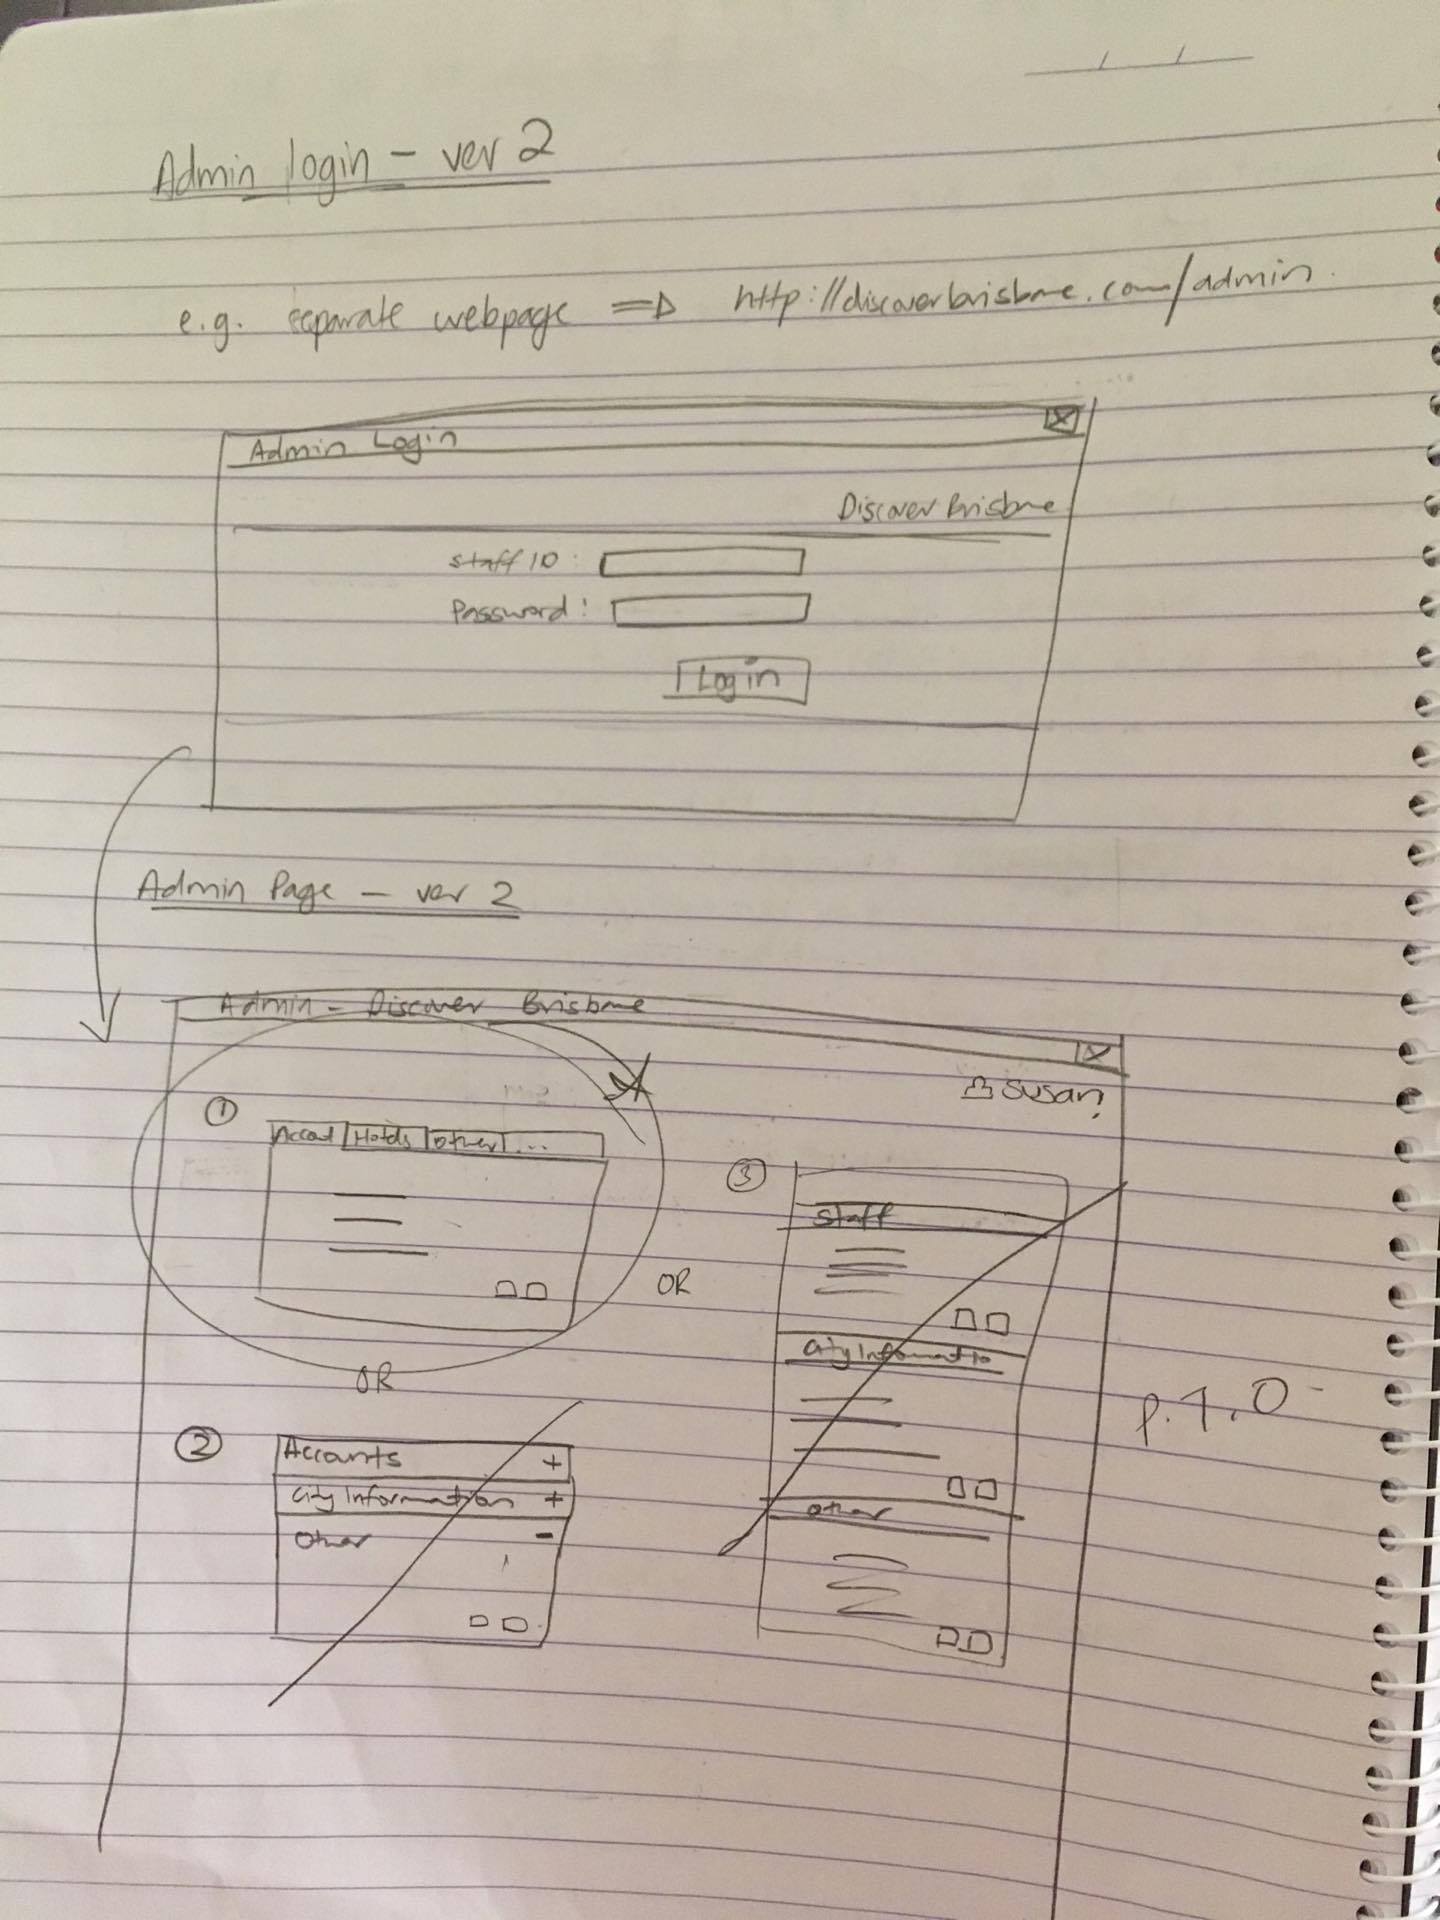 Admin login - ver 2
e.g. separate webpage => http://discoverbrisbane.com/admin.
Admin Login
X
Discover Brisbane
Staff ID :
Password :
Login
Admin Page - ver 2
Admin - Discover Brisbane
X
Susan
1
Accout Hotds Other ...
3
Staff
OR
City Informatio
Other
OR
2
Accounts +
City Information +
Other -